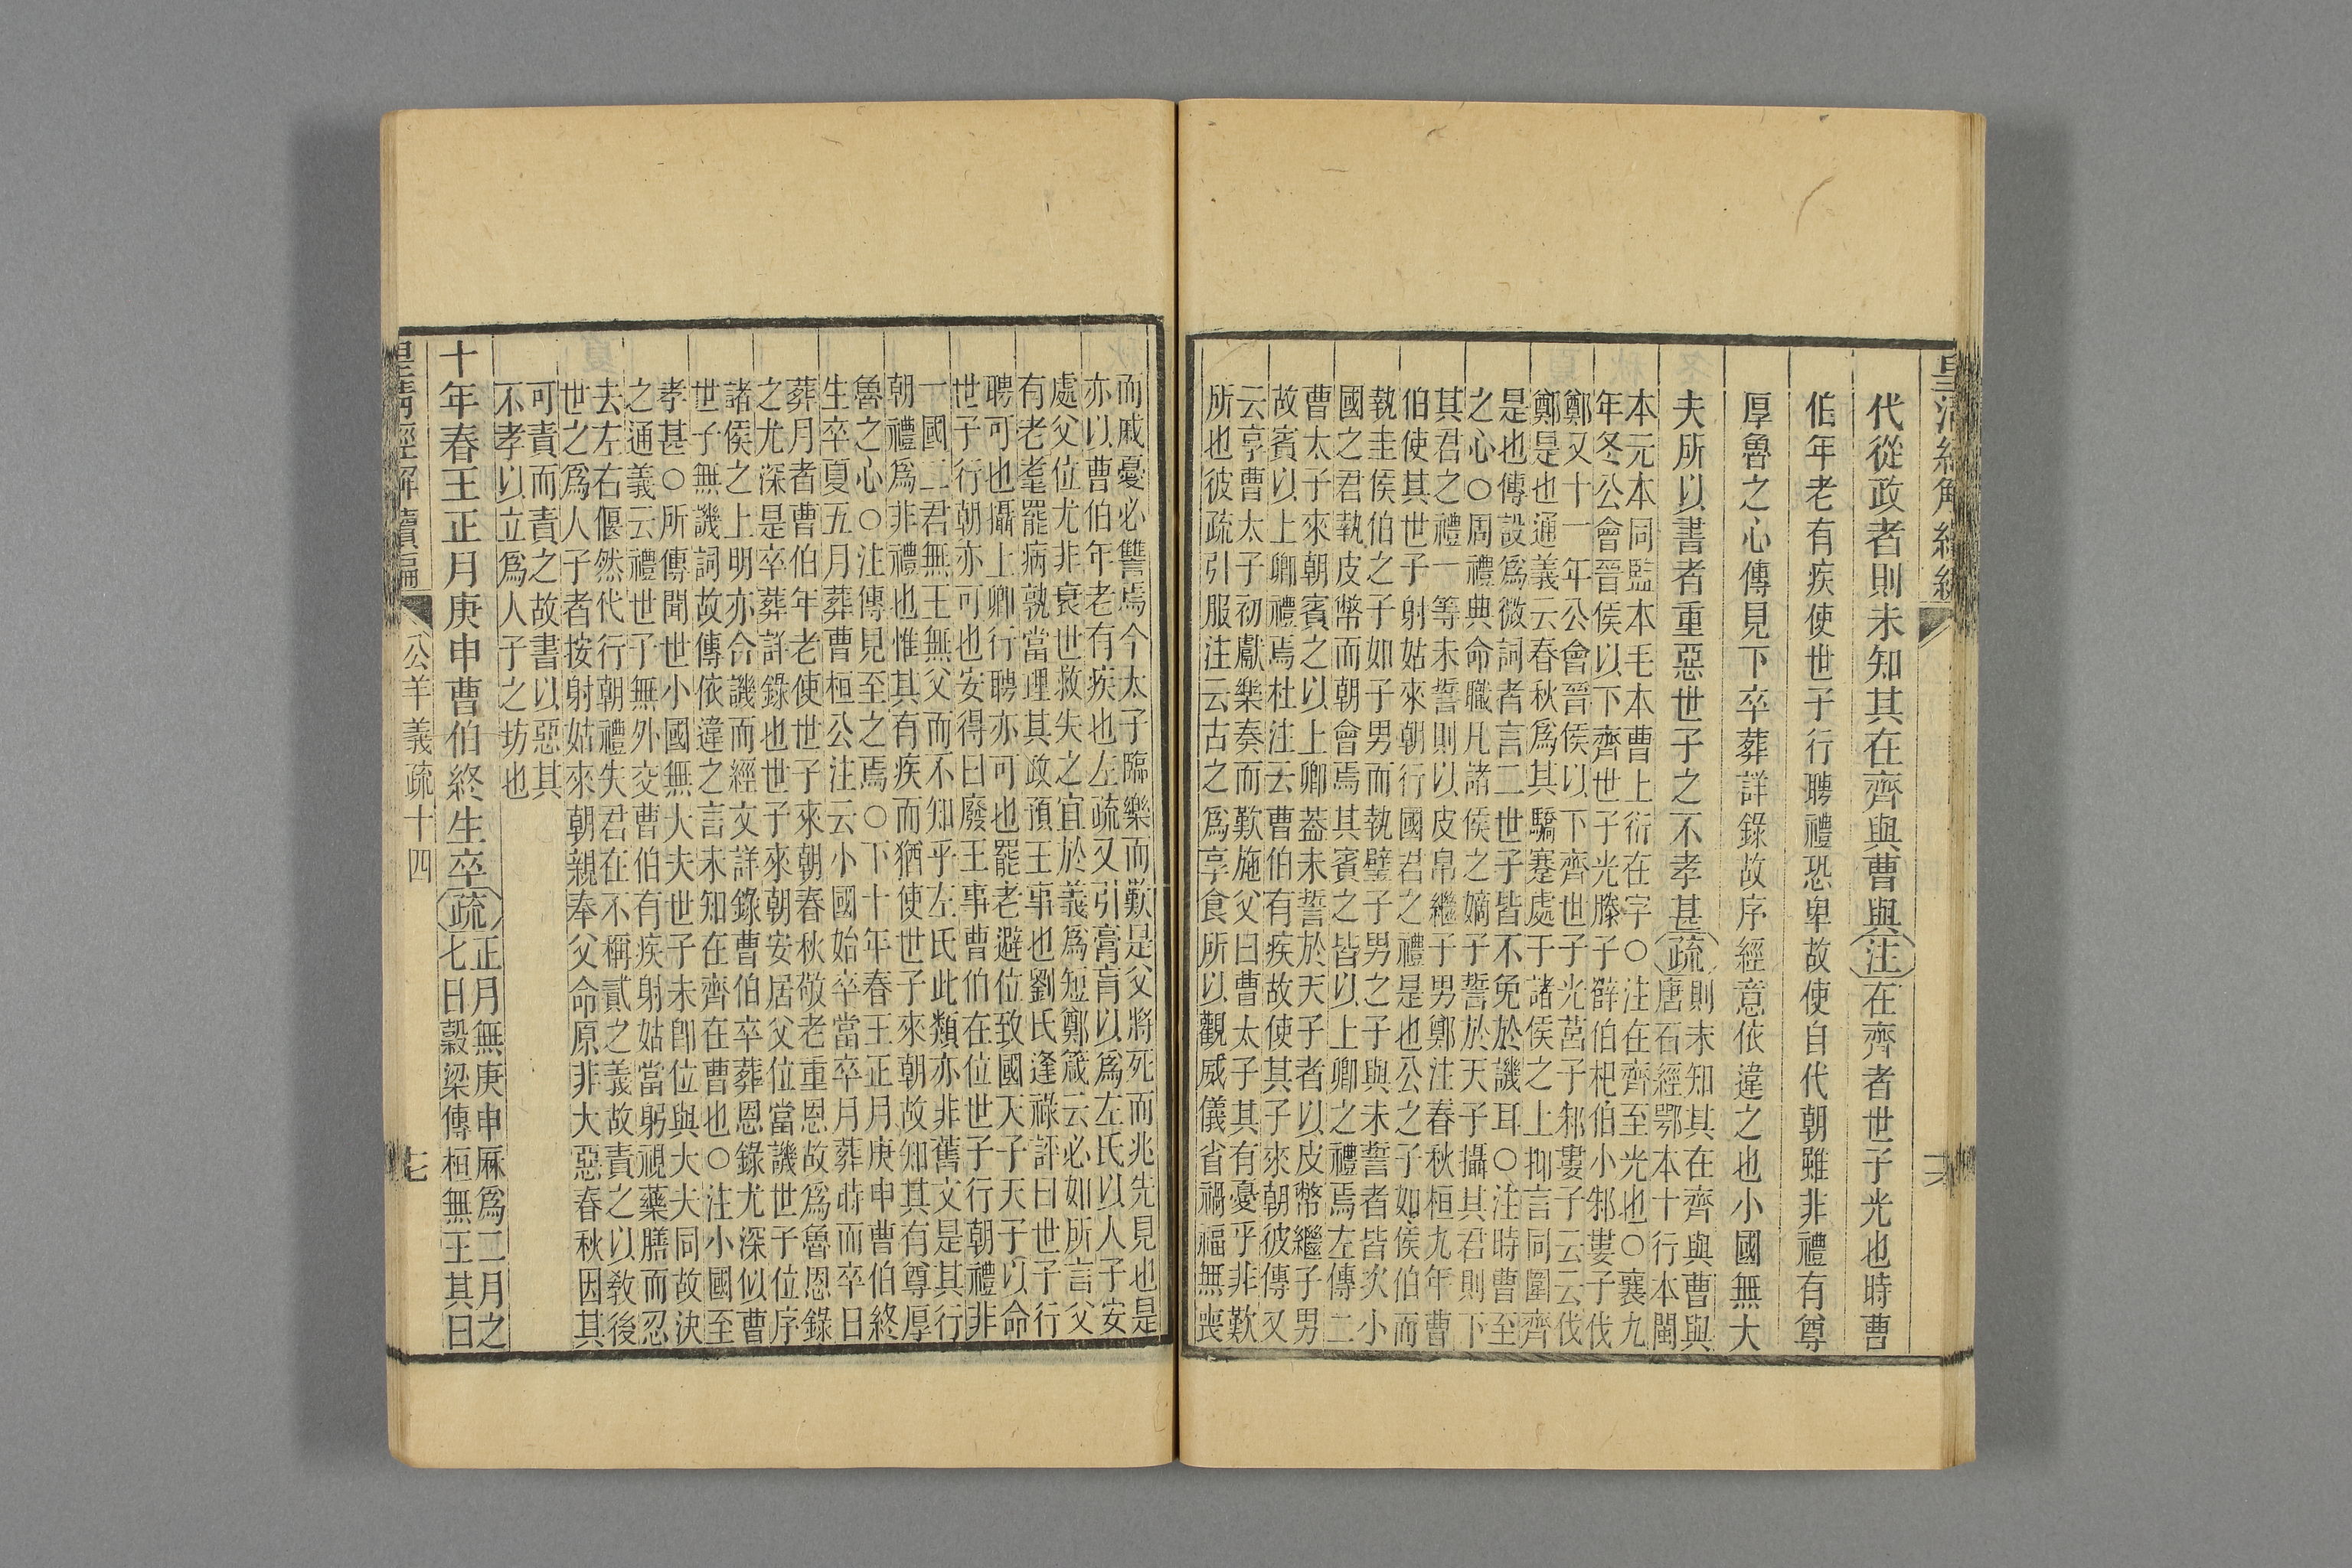 皇清經解續編
代從政者則未知其在齊與曹與注在齊者世子光也時曹
伯年老有疾使世子行聘禮恐卑故使自代朝雖非禮有尊
厚魯之心傳見下卒葬詳錄故序經意依違之也小國無大
夫所以書者重惡世子之不孝甚疏
則未知其在齊與曹與
唐石經鄂本十行本閩
本元本同監本毛本曹上衍在字○注在齊至光也○襄九
年冬公會晉侯以下齊世子光滕子薛伯杞伯小邾婁子伐
鄭又十一年公會晉侯以下齊世子光莒子邾婁子云云伐
鄭是也通義云春秋爲其驕蹇處于諸侯之上抑言同圍齊
是也傳設爲微詞者言二世子皆不免於譏耳○注時曹至
之心○周禮典命職凡諸侯之嫡子誓於天子攝其君則下
其君之禮一等未誓則以皮帛繼子男鄭注春秋桓九年曹
伯使其世子射姑來朝行國君之禮是也公之子如侯伯而
執圭侯伯之子如子男而執璧子男之子與未誓者皆次小
國之君執皮幣而朝會焉其賓之皆以上卿之禮焉左傳二
曹太子來朝賓之以上卿葢未誓於天子者以皮幣繼子男
故賓以上卿禮焉杜注云曹伯有疾故使其子來朝彼傳又
云享曹太子初獻樂奏而歎施父曰曹太子其有憂乎非歎
所也彼疏引服注云古之爲享食所以觀威儀省禍福無喪
而戚憂必讐焉今太子臨樂而歎是父將死而兆先見也是
亦以曹伯年老有疾也左疏又引膏肓以爲左氏以人子安
處父位尤非衰世救失之宜於義爲短鄭箴云必如所言父
有老耄罷病孰當理其政預王事也劉氏逢祿評曰世子行
聘可也攝上卿行聘亦可也罷老避位致國天子天子以命
世子行朝亦可也安得曰廢王事曹伯在位世子行朝禮非
一國二君無王無父而不知乎左氏此類亦非舊文是其行
朝禮爲非禮也惟其有疾而猶使世子來朝故知其有尊厚
魯之心○注傳見至之焉○下十年春王正月庚申曹伯終
生卒夏五月葬曹桓公注云小國始卒當卒月葬時而卒日
葬月者曹伯年老使世子來朝春秋敬老重恩故爲魯恩錄
之尤深是卒葬詳錄也世子來朝安居父位當譏世子位序
諸侯之上明亦合譏而經文詳錄曹伯卒葬恩錄尤深似曹
世子無譏詞故傳依違之言未知在齊在曹也○注小國至
孝甚○所傳聞世小國無大夫世子未卽位與大夫同故決
之通義云禮世子無外交曹伯有疾射姑當躬視藥膳而忍
去左右偃然代行朝禮失君在不稱貳之義故責之以敎後
世之爲人子者按射姑來朝親奉父命原非大惡春秋因其
可責而責之故書以惡其
不孝以立爲人子之坊也
十年春王正月庚申曹伯終生卒疏
正月無庚申厤爲二月之
七日穀梁傳桓無王其曰
皇清經解續編
公羊義疏十四